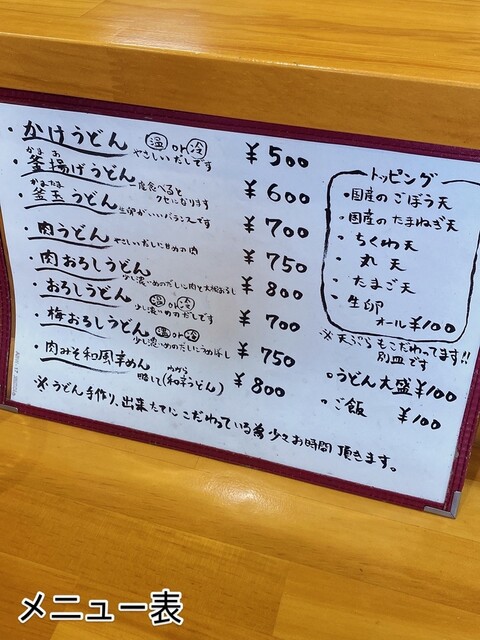 ・かけうどん 温or冷 やさしいだしです ¥500
・釜揚げうどん 一度食べるとクセになります ¥600
・釜玉うどん 生卵がいいバランスです ¥700
・肉うどん やさしいだしに甘めの肉 ¥750
・肉おろしうどん 少し濃いめのだしに肉と大根おろし ¥800
・おろしうどん 温or冷 少し濃いめのだしです ¥700
・梅おろしうどん 温or冷 少し濃いめのだしにうめぼし ¥750
・肉みそ和風辛めん 略して(和辛うどん) ¥800
※うどん手作り、出来たてにこだわっている為少々お時間頂きます。
トッピング
・国産のごぼう天
・国産のたまねぎ天
・ちくわ天
・丸天
・たまご天
・生卵
オール¥100
※天ぷらもこだわってます!!
別皿です
○うどん大盛¥100
○ご飯 ¥100
メニュー表